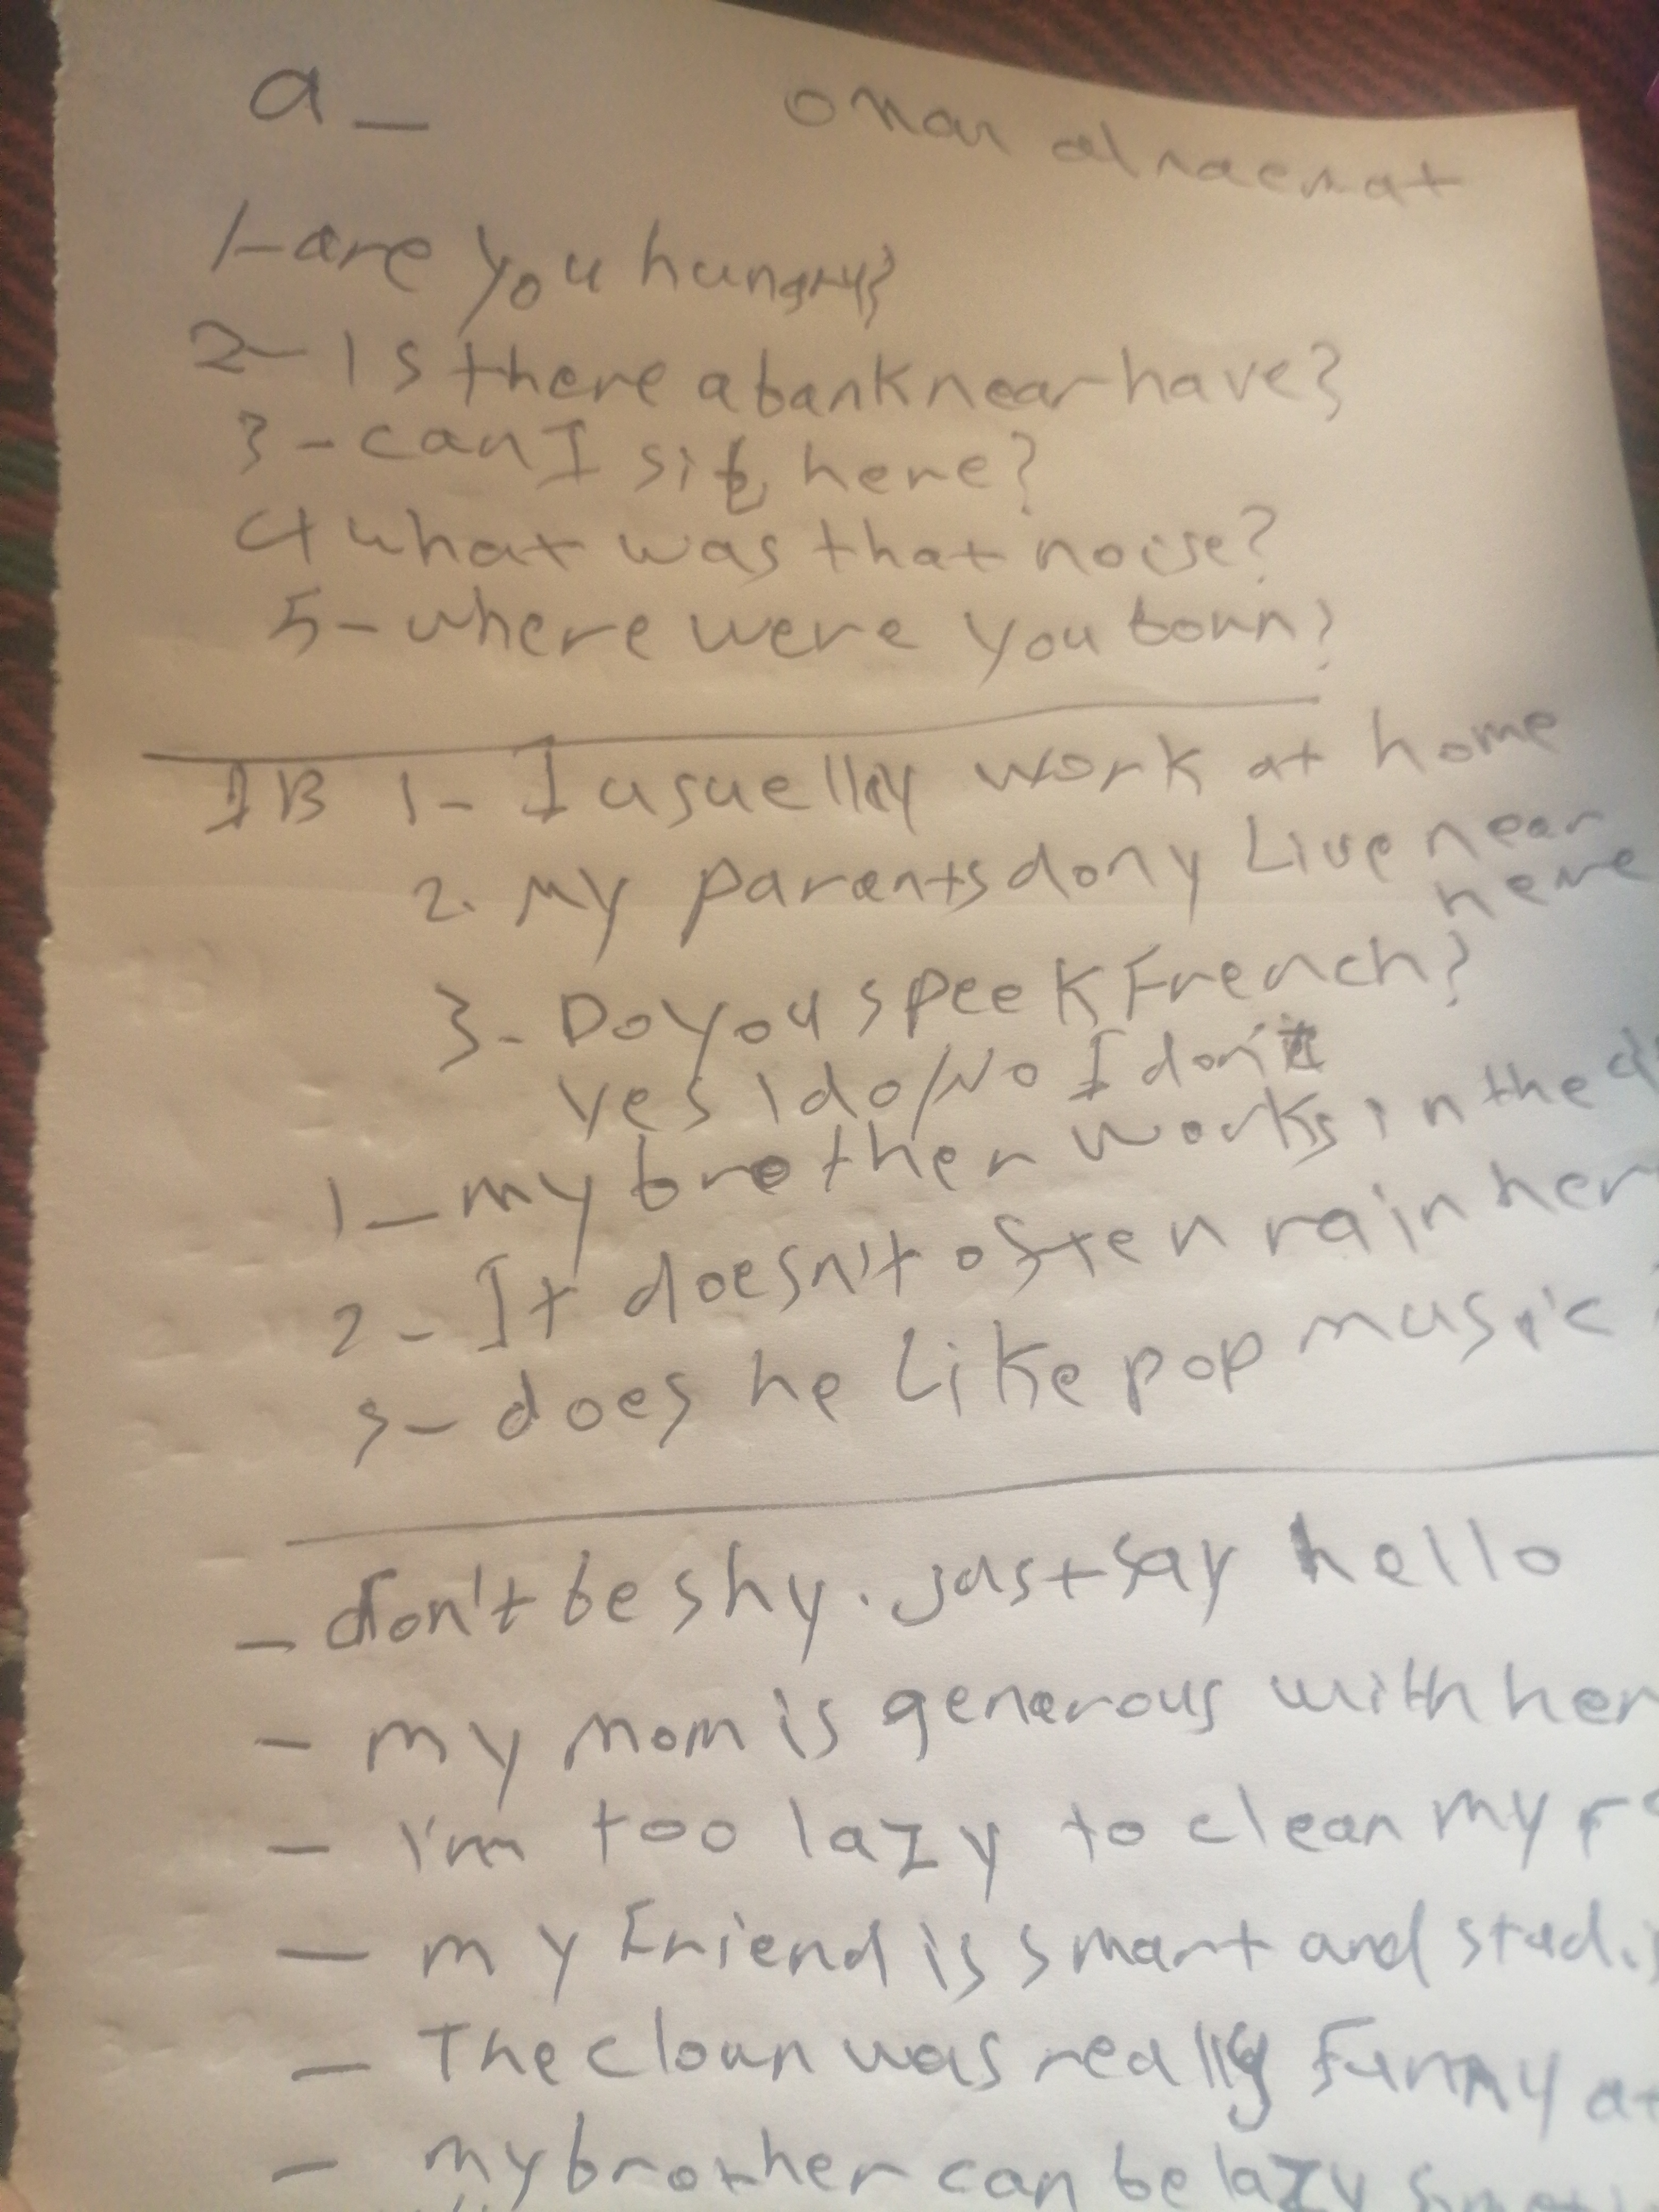 a _ omar alnaemat
1-are you hungry?
2-Is there a bank near have?
3-can I sit here?
4 what was that noise?
5-where were you born?
1B 1- I usuelly work at home
2. My parents dony Live near
here
3- Do you speek French?
yes I do/No I don't
1_my brother works in the
2- It doesn't often rain her
3-does he Like pop music
_ don't be shy. Just say hello
- my mom is generous with her
- I'm too lazy to clean my
- my Friend is smart and
- The cloun was really Funny at
- my brother can be lazy